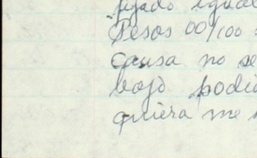 fijado igual
Pesos 00/100
causa no se
bajo podi
quiera me